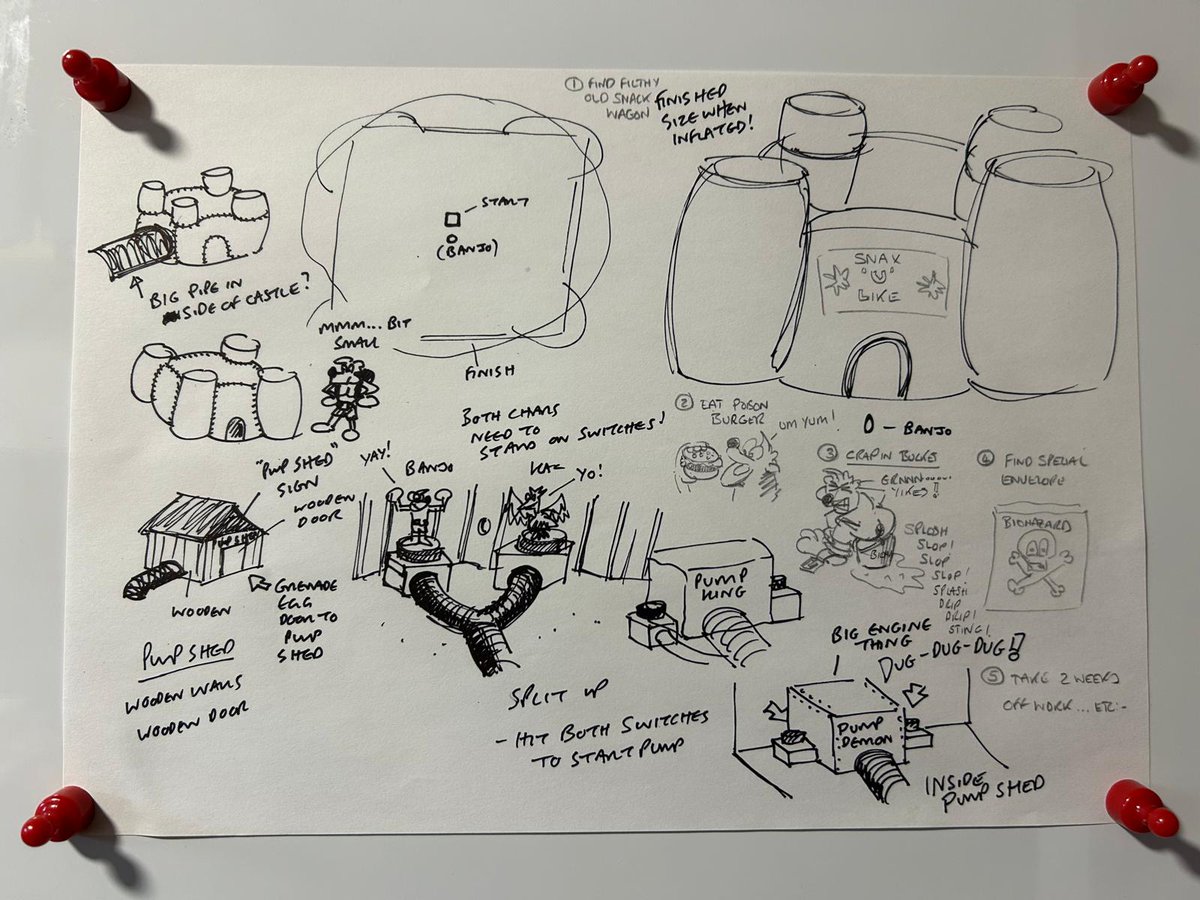 ① FIND FILTHY
OLD SNACK
WAGON
FINISHED
SIZE WHEN
INFLATED!
START
(BANJO)
BIG PIPE IN
SIDE OF CASTLE?
MMM... BIT
SMALL
FINISH
SNAK
U
LIKE
② EAT POISON
BURGER
UM YUM!
0 - BANJO
③ CRAP IN BUCKET
GRNNN
YIKES!!
SPLOSH
SLOP!
SLOP
SLOP!
SPLASH
DRIP
DRIP!
STING!
④ FIND SPECIAL
ENVELOPE
BIOHAZARD
⑤ TAKE 2 WEEKS
OFF WORK... ETC:-
BOTH CHARS
NEED TO
STAND ON SWITCHES!
YAY!
BANJO
KAZ
YO!
"PUMP SHED"
SIGN
WOODEN
DOOR
WOODEN
GRENADE
EGG
DOOR TO
PUMP
SHED
PUMP SHED
WOODEN WALLS
WOODEN DOOR
PUMP
KING
SPLIT UP
- HIT BOTH SWITCHES
TO START PUMP
BIG ENGINE
THING
DUG-DUG-DUG!
PUMP
DEMON
INSIDE
PUMP SHED